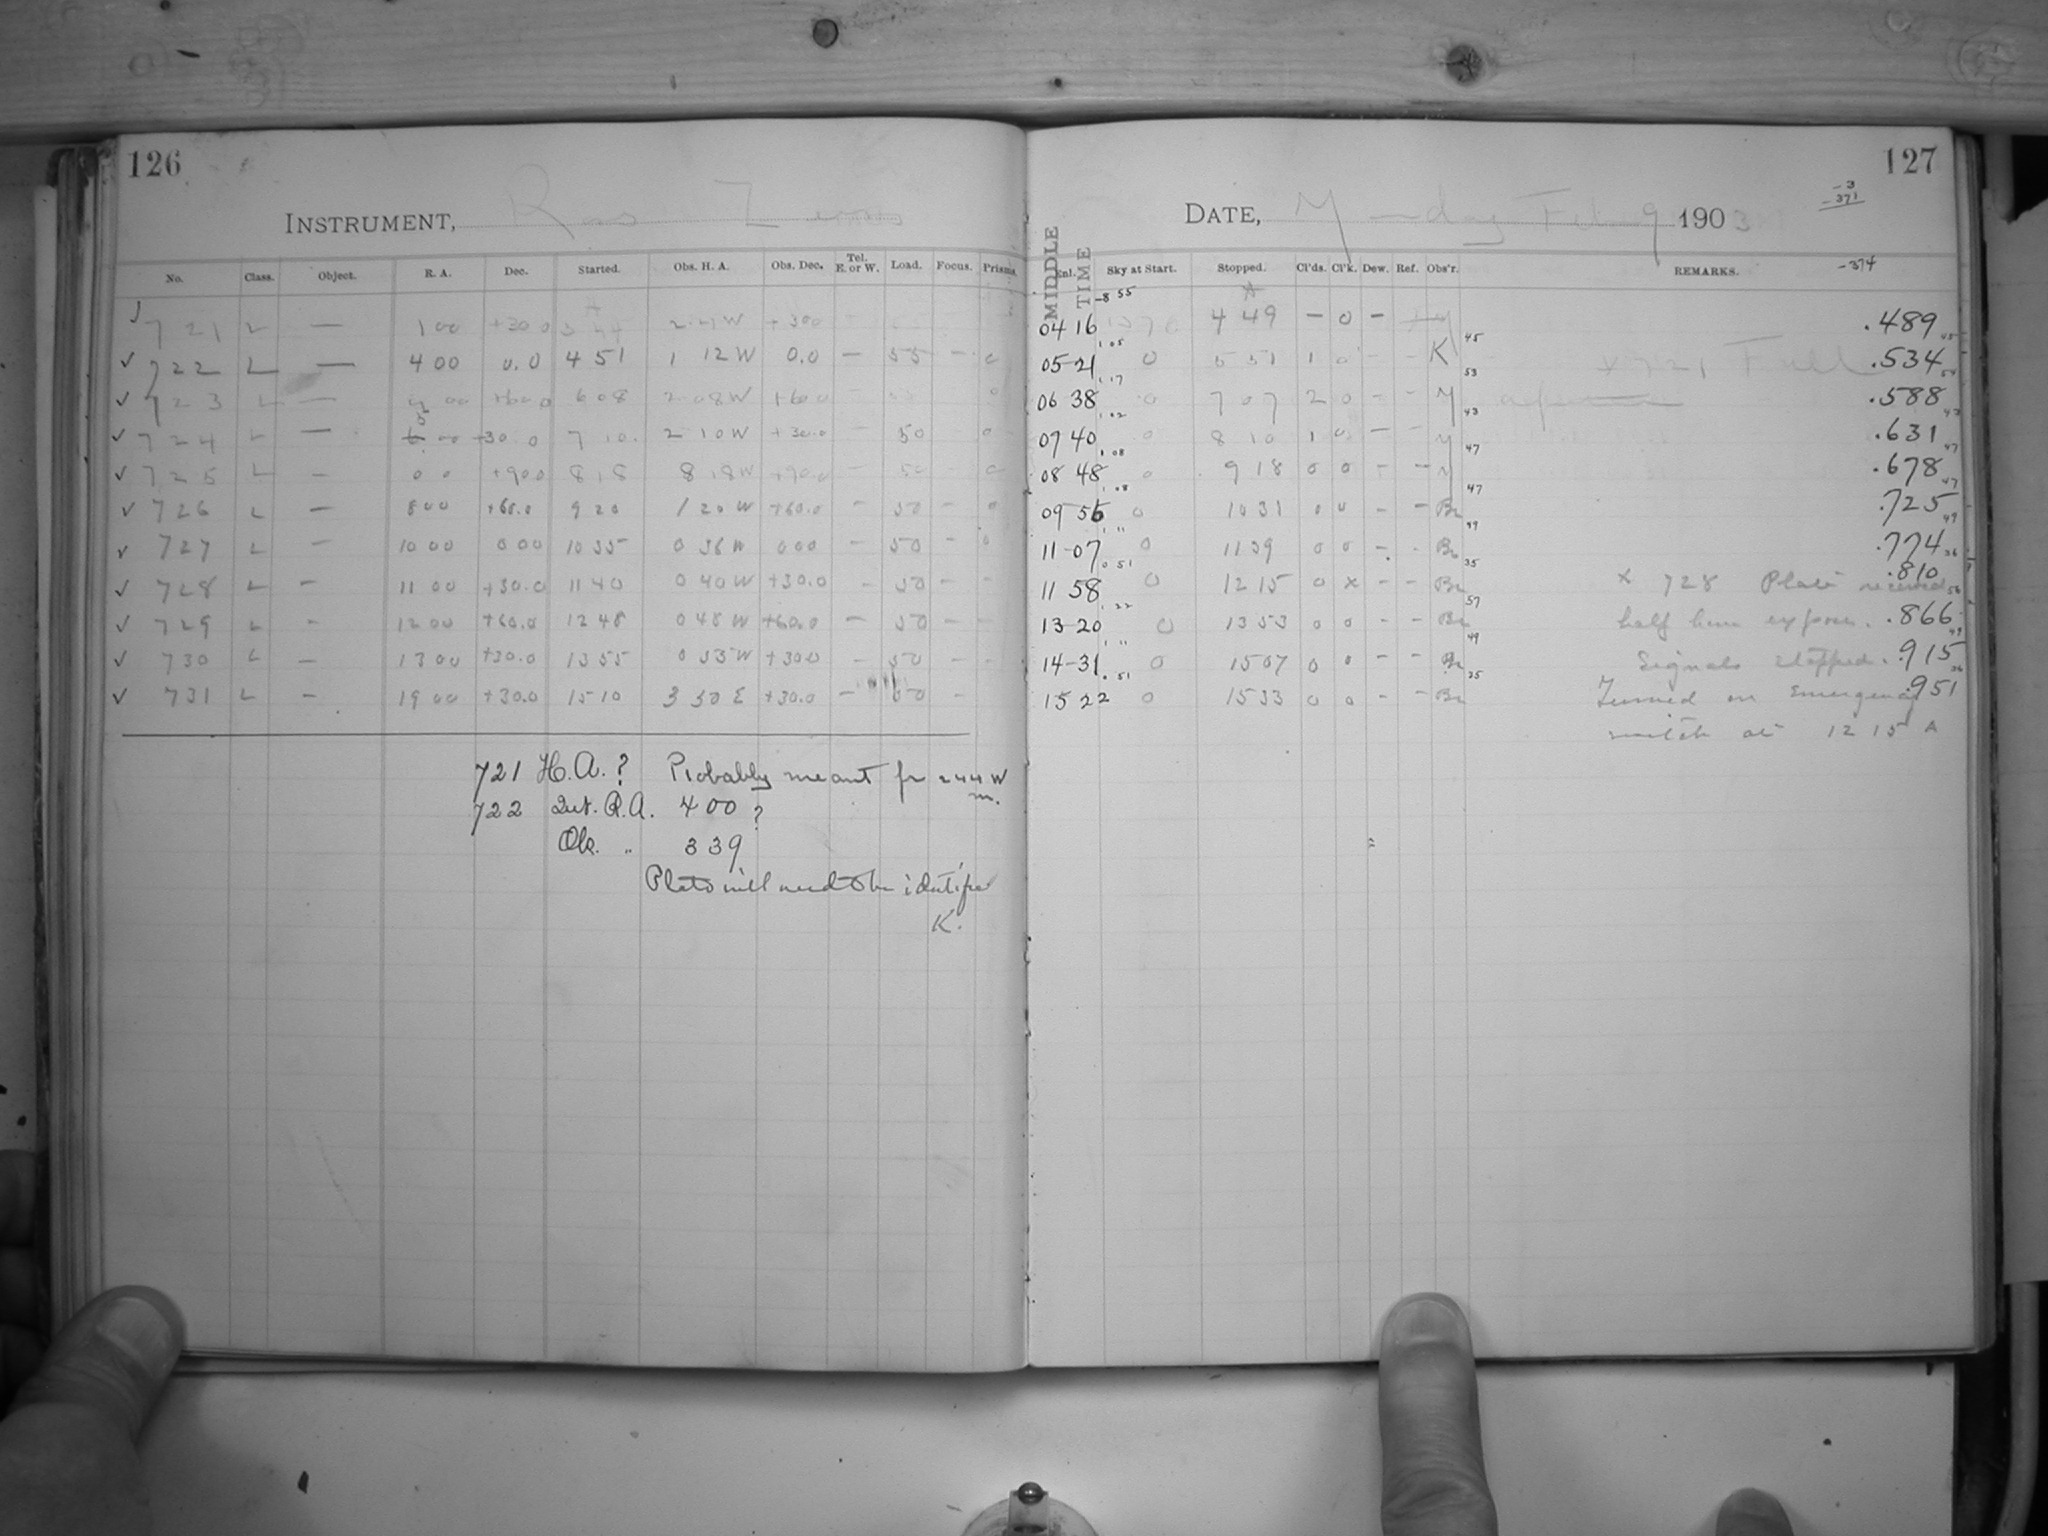 126
INSTRUMENT, Ross Lens
No. Class. Object. R. A. Dec. Started. Obs. H. A. Obs. Dec. Tel. E. or W. Load. Focus. Prisms.
721 L — 1 00 +30 0 3 44 +30 0
✓ 722 L — 4 00 0.0 4 51 1 12 W 0.0 — 55 - 0
✓ 723 L — 00 +60 0 6 08 2 08 W +60 0
✓ 724 L — 5 00 +30.0 7 10. 2 10 W +30.0 — 50 - 0
✓ 725 L — 0 0 +90 0 8 18 8 18 W +90.0 — 50 - 0
✓ 726 L — 8 00 +60.0 9 20 1 20 W +60.0 — 50 - 0
✓ 727 L — 10 00 0 00 10 35 0 36 W 0 00 — 50 - 0
✓ 728 L — 11 00 +30.0 11 40 0 40 W +30.0 — 50 - -
✓ 729 L - 12 00 +60.0 12 48 0 48 W +60.0 — 50 - -
✓ 730 L — 13 00 +30.0 13 55 0 55 W +30.0 — 50 - -
✓ 731 L — 19 00 +30.0 15 10 3 50 E +30.0 — 50 -
721 H.A. ? Probably meant for 2 44 W
m.
722 Int. R.A. 4 00 ?
Ob. " 3 39
Plate will need to be identified
K.
127
-3
-371
DATE, Monday Feb 9 1903
-374
MIDDLE TIME
Enl. Sky at Start. Stopped. Cl'ds. Cl'k. Dew. Ref. Obs'r. REMARKS.
-8 55
04 16 4 49 — 0 — .489
1 05 45
05-21 0 5 51 1 0 - - K x 721 Full .534
1 17 53
06 38 0 7 07 2 0 - - M .588
1 02 43
07 40 0 8 10 1 0 — - M .631
1 08 47
08 48 0 9 18 0 0 - - M .678
1 08 47
09 56 0 10 31 0 0 - - Br .725
1 11 49
11-07 0 11 39 0 0 - - Br .774
0 51 35
11 58 0 12 15 0 x - - Br x 728 Plate received .810
1 22 57
13-20 0 13 53 0 0 - - Br half hour exposure. .866
1 11 49
14-31 0 15 07 0 0 - - Br Signals stopped. .915
0 51 35
15 22 0 15 33 0 0 - - Br Turned on emergency .951
switch at 12 15 A